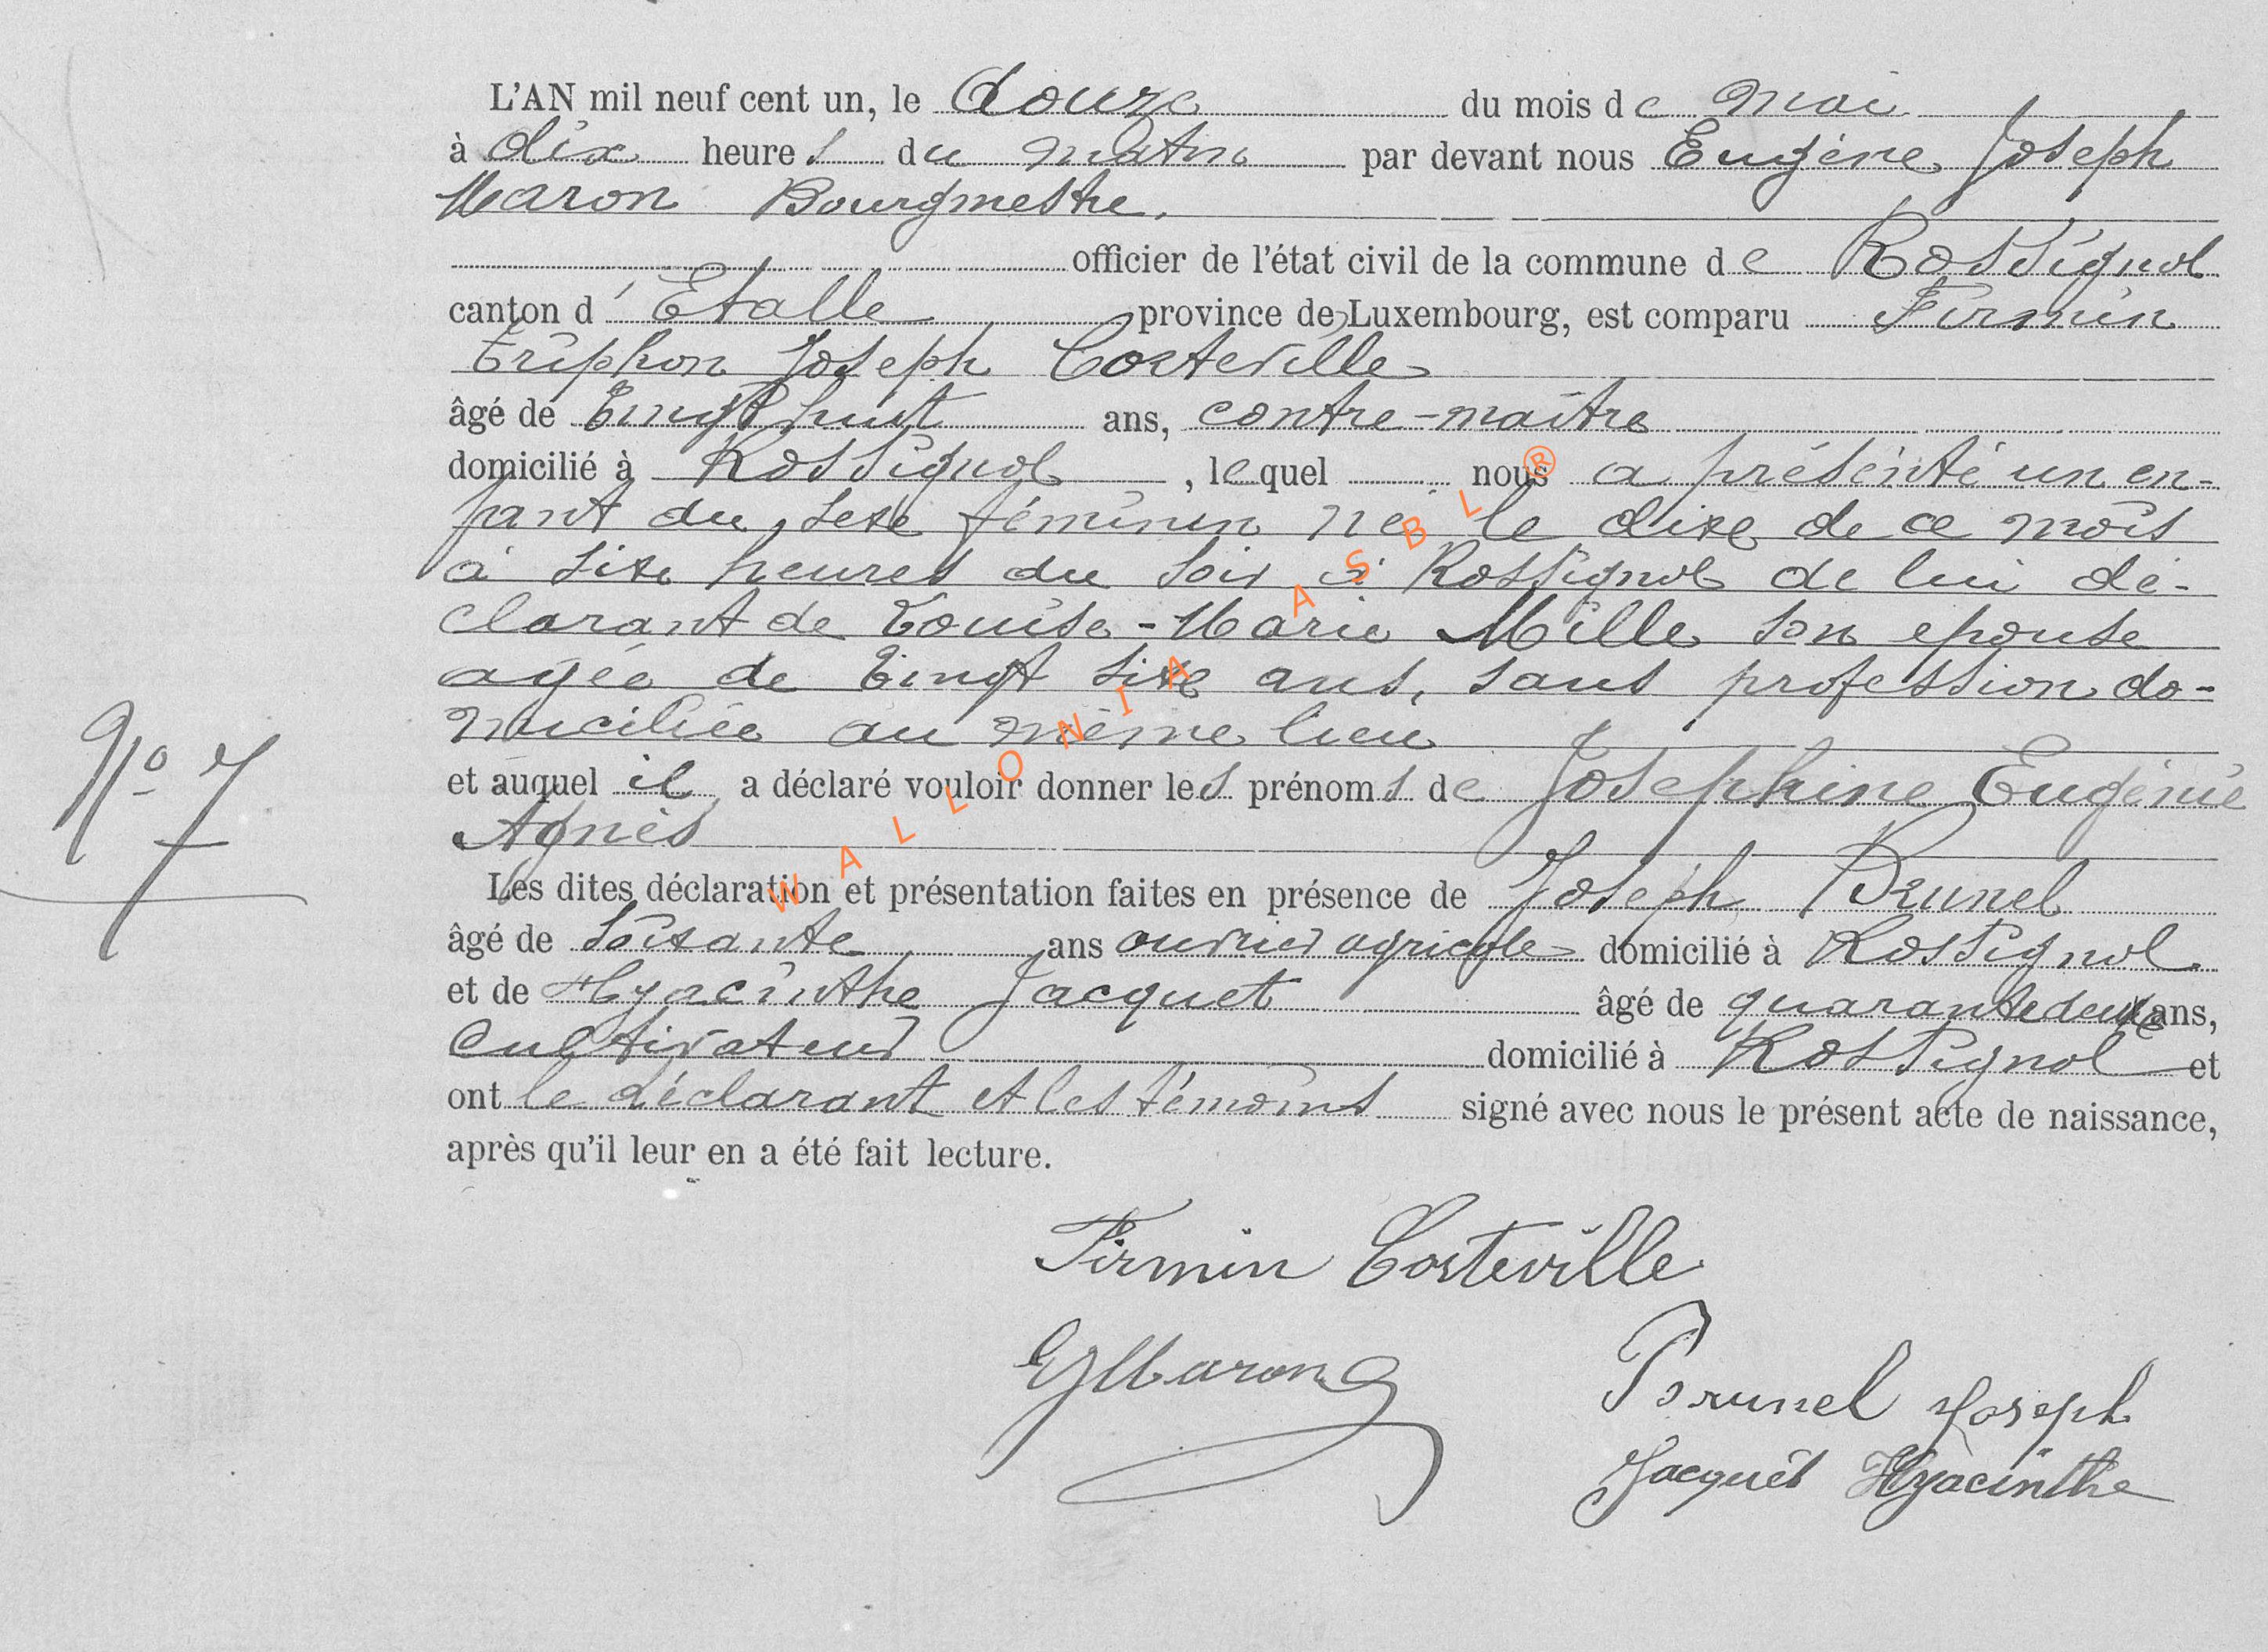 L'AN mil neuf cent un, le douze du mois de mai
à dix heures du matin par devant nous Eugène Joseph
Maron Bourgmestre.
officier de l'état civil de la commune de Rossignol
canton d'Etalle province de Luxembourg, est comparu Firmin
Triphon Joseph Costeville
âgé de vingt huit ans, contre-maître
domicilié à Rossignol, lequel nous a présenté un en-
fant du sexe féminin né le dixe de ce mois
à sixe heures du soir à Rossignol de lui dé-
clarant de Louise-Marie Mille son epouse
agée de vingt sixe ans, sans profession do-
miciliée au même lieu
N° 7
et auquel il a déclaré vouloir donner les prénoms de Joséphine Eugénie
Agnès
Les dites déclaration et présentation faites en présence de Joseph Brunel
âgé de soixante ans ouvrier agricole domicilié à Rossignol
et de Hyacinthe Jacquet âgé de quarante deux ans,
cultivateur domicilié à Rossignol et
ont le déclarant et les témoins signé avec nous le présent acte de naissance,
après qu'il leur en a été fait lecture.
Firmin Costeville
EJMaron
Brunel Joseph
Jacquet Hyacinthe
WALLONIA ASBL ®